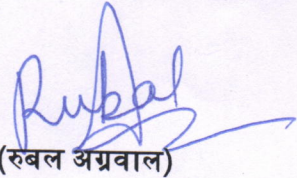 Rubal
(रुबल अग्रवाल)